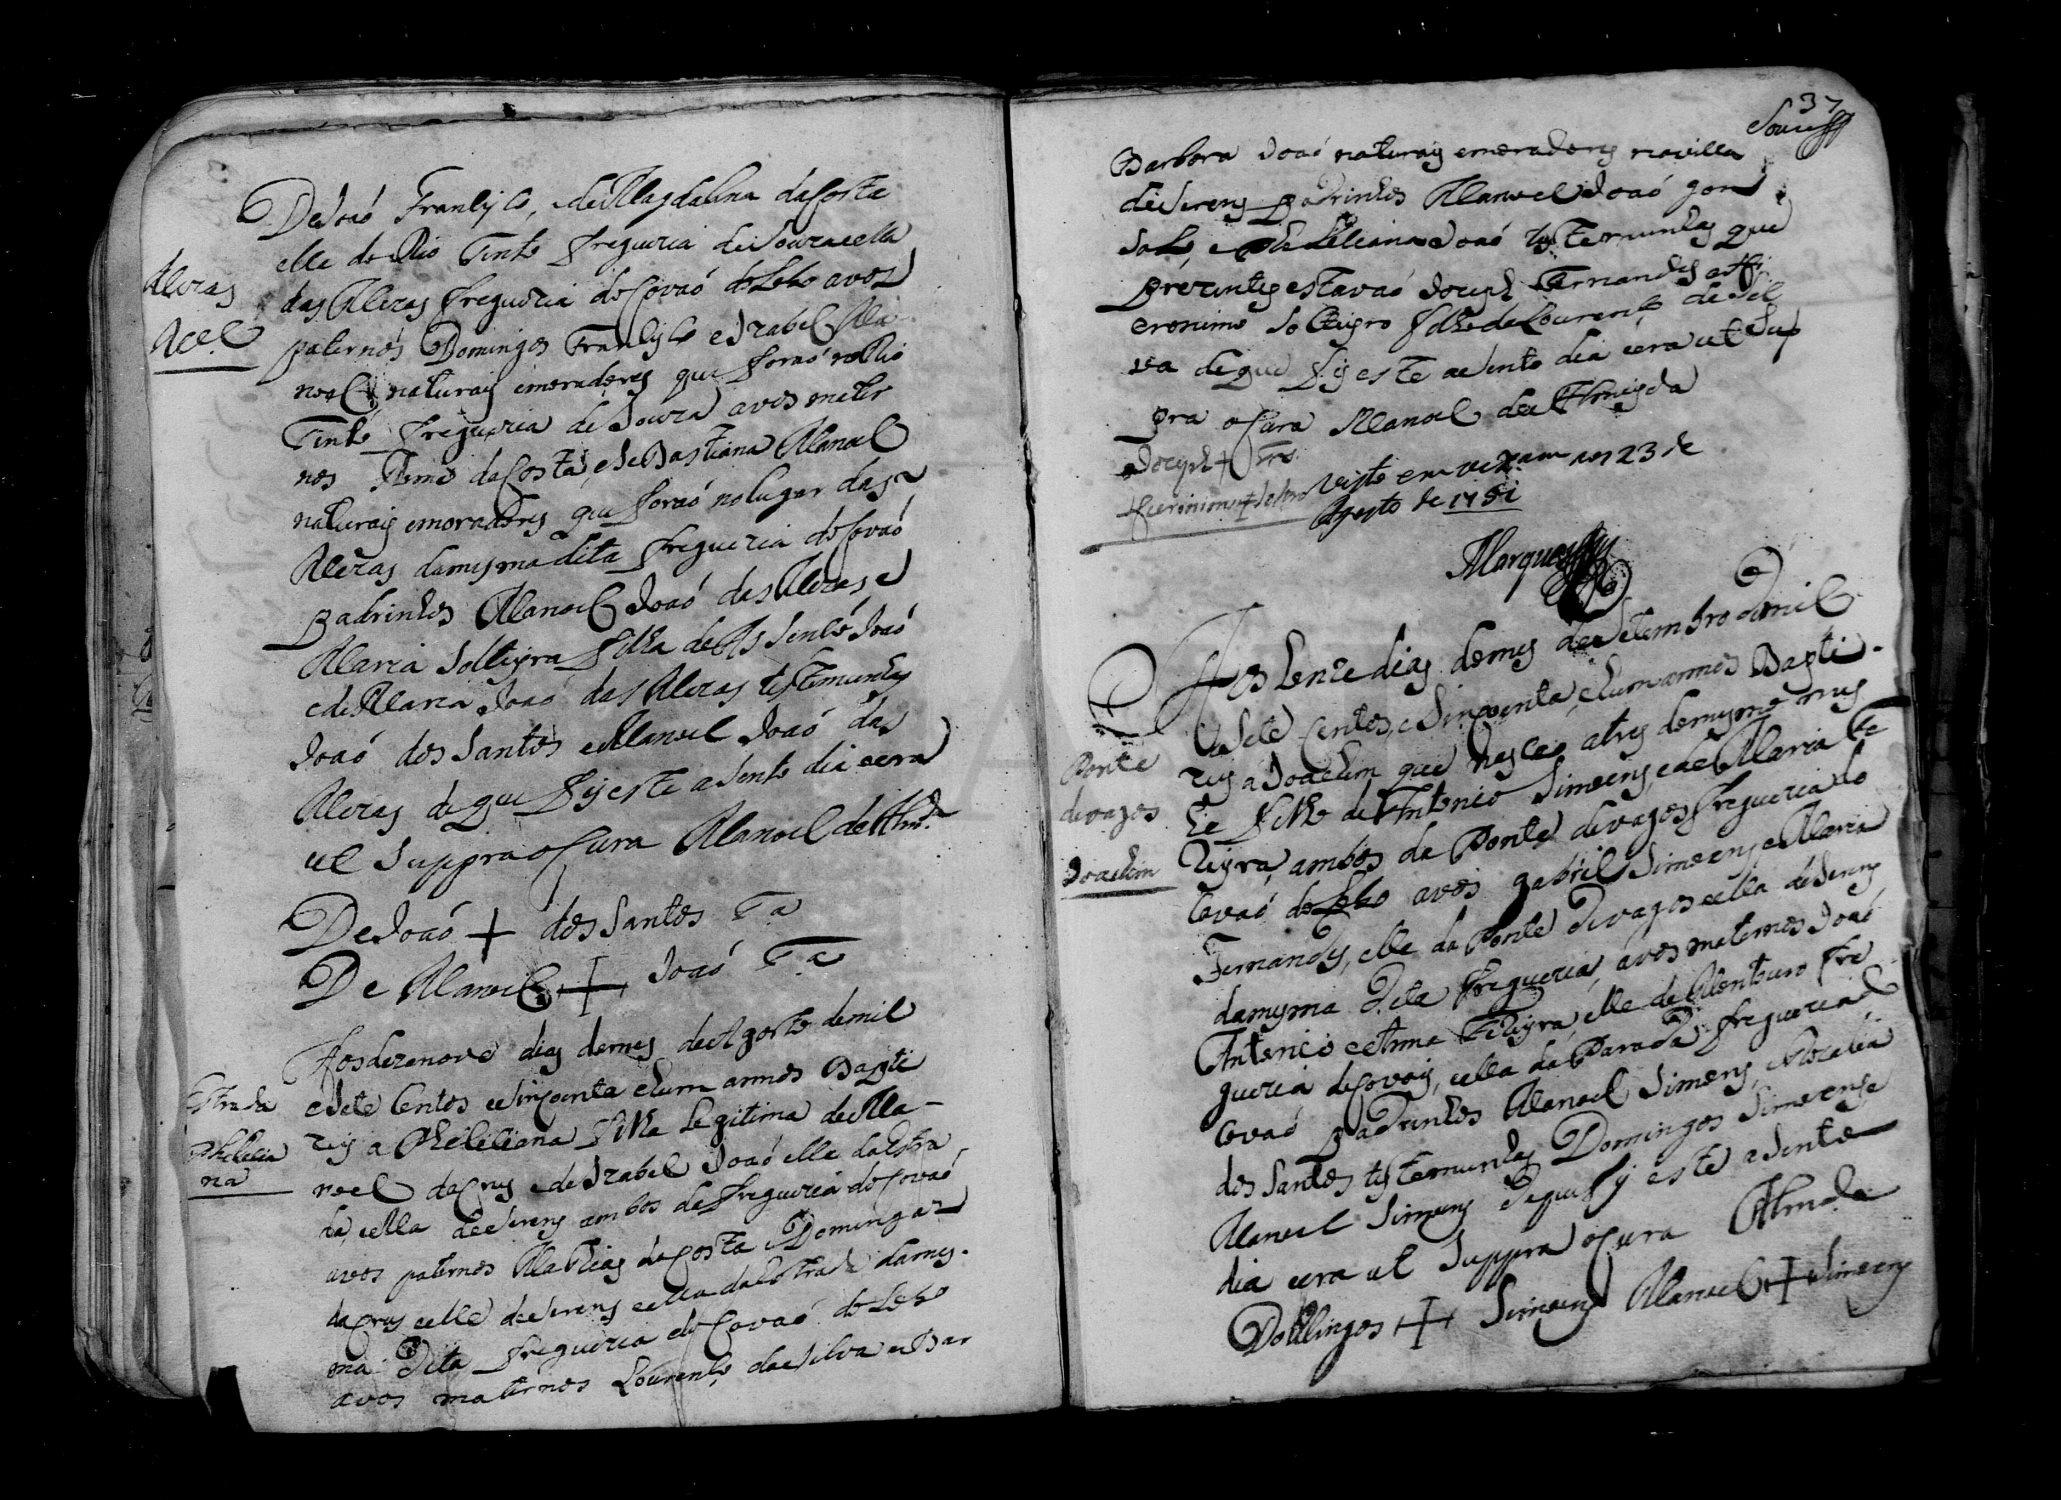 De João Franc.co, e de Magdalena da Costa
elle do Rio Tinto freguezia de Souza e ella
das Mezas freguezia do Covaó do Lobo avos
paternos Domingos Franc.co e Izabel Ma
noel naturais e moradores que foraó no Rio
Tinto freguezia de Souza avos mater
nos Thome da Costa, e Sebastiana Manoel
naturais e moradores que foraó no lugar das
Mezas da mesma dita freguezia do Covaó
Padrinhos Manoel Joaó das Mezas e
Maria solteyra filha de Joaó
e de Maria Joaó das Mezas testemunhas
Joaó dos Santos e Manoel Joaó das
Mezas de que fis este asento dia e era
ut suppra o Cura Manoel de Alm.da
De Joaó + dos Santos T.a
De Manoel + Joaó T.a
Mezas
Aos dezenove dias do mes de Agosto de mil
e sete Centos e sincoenta e hum annos Bapti
zei a Pheleciana filha legitima de Ma-
noel da Crus e de Izabel Joaó elle da Estra
da, e ella de Serens ambos da freguezia do Covaó
avos paternos Mathias da Costa e Domingas
da Crus elle de Serens e ella da Estrada da mes-
ma dita freguezia do Covaó do Lobo
avos maternos Lourenço da Silva e Bar
Estrada
Phelecia
na
37
Barbora Joaó naturais e moradores na villa
de Serens Padrinhos Manoel Joaó gon
salo, e Pheleciana Joaó testemunhas que
prezentes estavaó Joseph Fernandes
eronimo solteyro filho de Lourenço da Sil
va de que fis este asento dia e era ut sup
pra o Cura Manoel de Almeyda
Joseph + Frs
Hieronimo + soltro
Visto em vizitam aos 23 de
Agosto de 1751
Marques
Aos honze dias do mes de Setembro de mil
e sete Centos, e sincoenta, e hum annos Bapti-
zei a Joachim que nasceo a tres do mesmo mes
he filho de Antonio Simoens, e de Maria Fe
rreyra, ambos da Ponte de Vagos freguezia do
Covaó do Lobo avos gabriel Simoens e Maria
Fernandes, elle da Ponte de Vagos e ella de Serens
da mesma dita freguezia, avos maternos Joaó
Antonio e Anna Ferreyra, elle de Montouro fre
guezia de Covois, e ella da Parada freguezia do
Covaó Padrinhos Manoel Simoens, e Rozalia
dos Santos testemunhas Domingos Simoens e
Manoel Simoens de que fis este asento
dia e era ut suppra o Cura Almeda
Domingos + Simoens Manoel + Simoens
Ponte
de vagos
Joachim